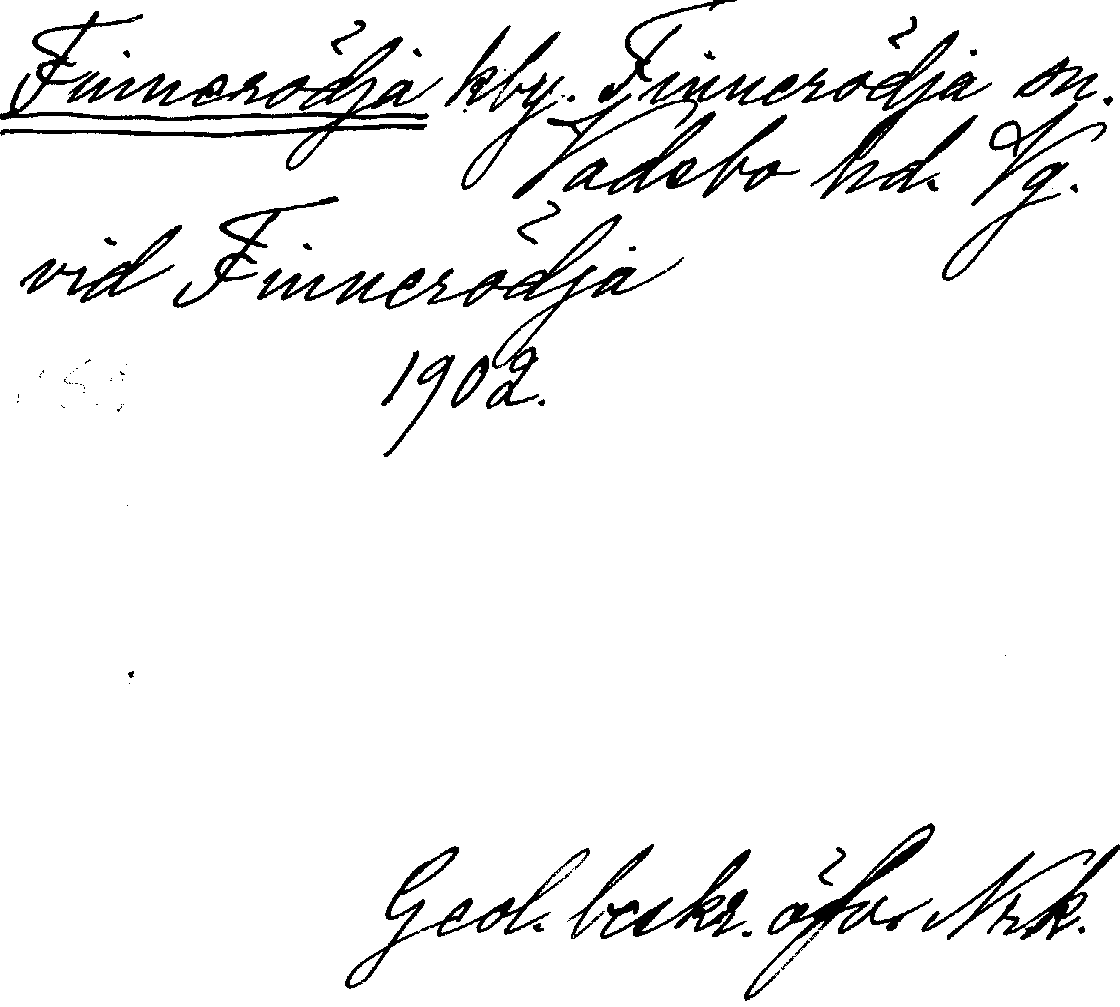 Finnerödja kby. Finnerödja sn.
Vadsbo hd. Vg.
vid Finnerödja
1902.
Geol. beskr. öfv. Nrk.